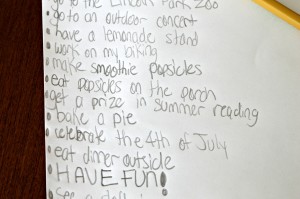 go to the Lincoln Park Zoo
go to an outdoor concert
have a lemonade stand
work on my biking
make smoothie popsicles
eat popsicles on the porch
get a prize in summer reading
bake a pie
celebrate the 4th of July
eat dinner outside
HAVE FUN!
see a